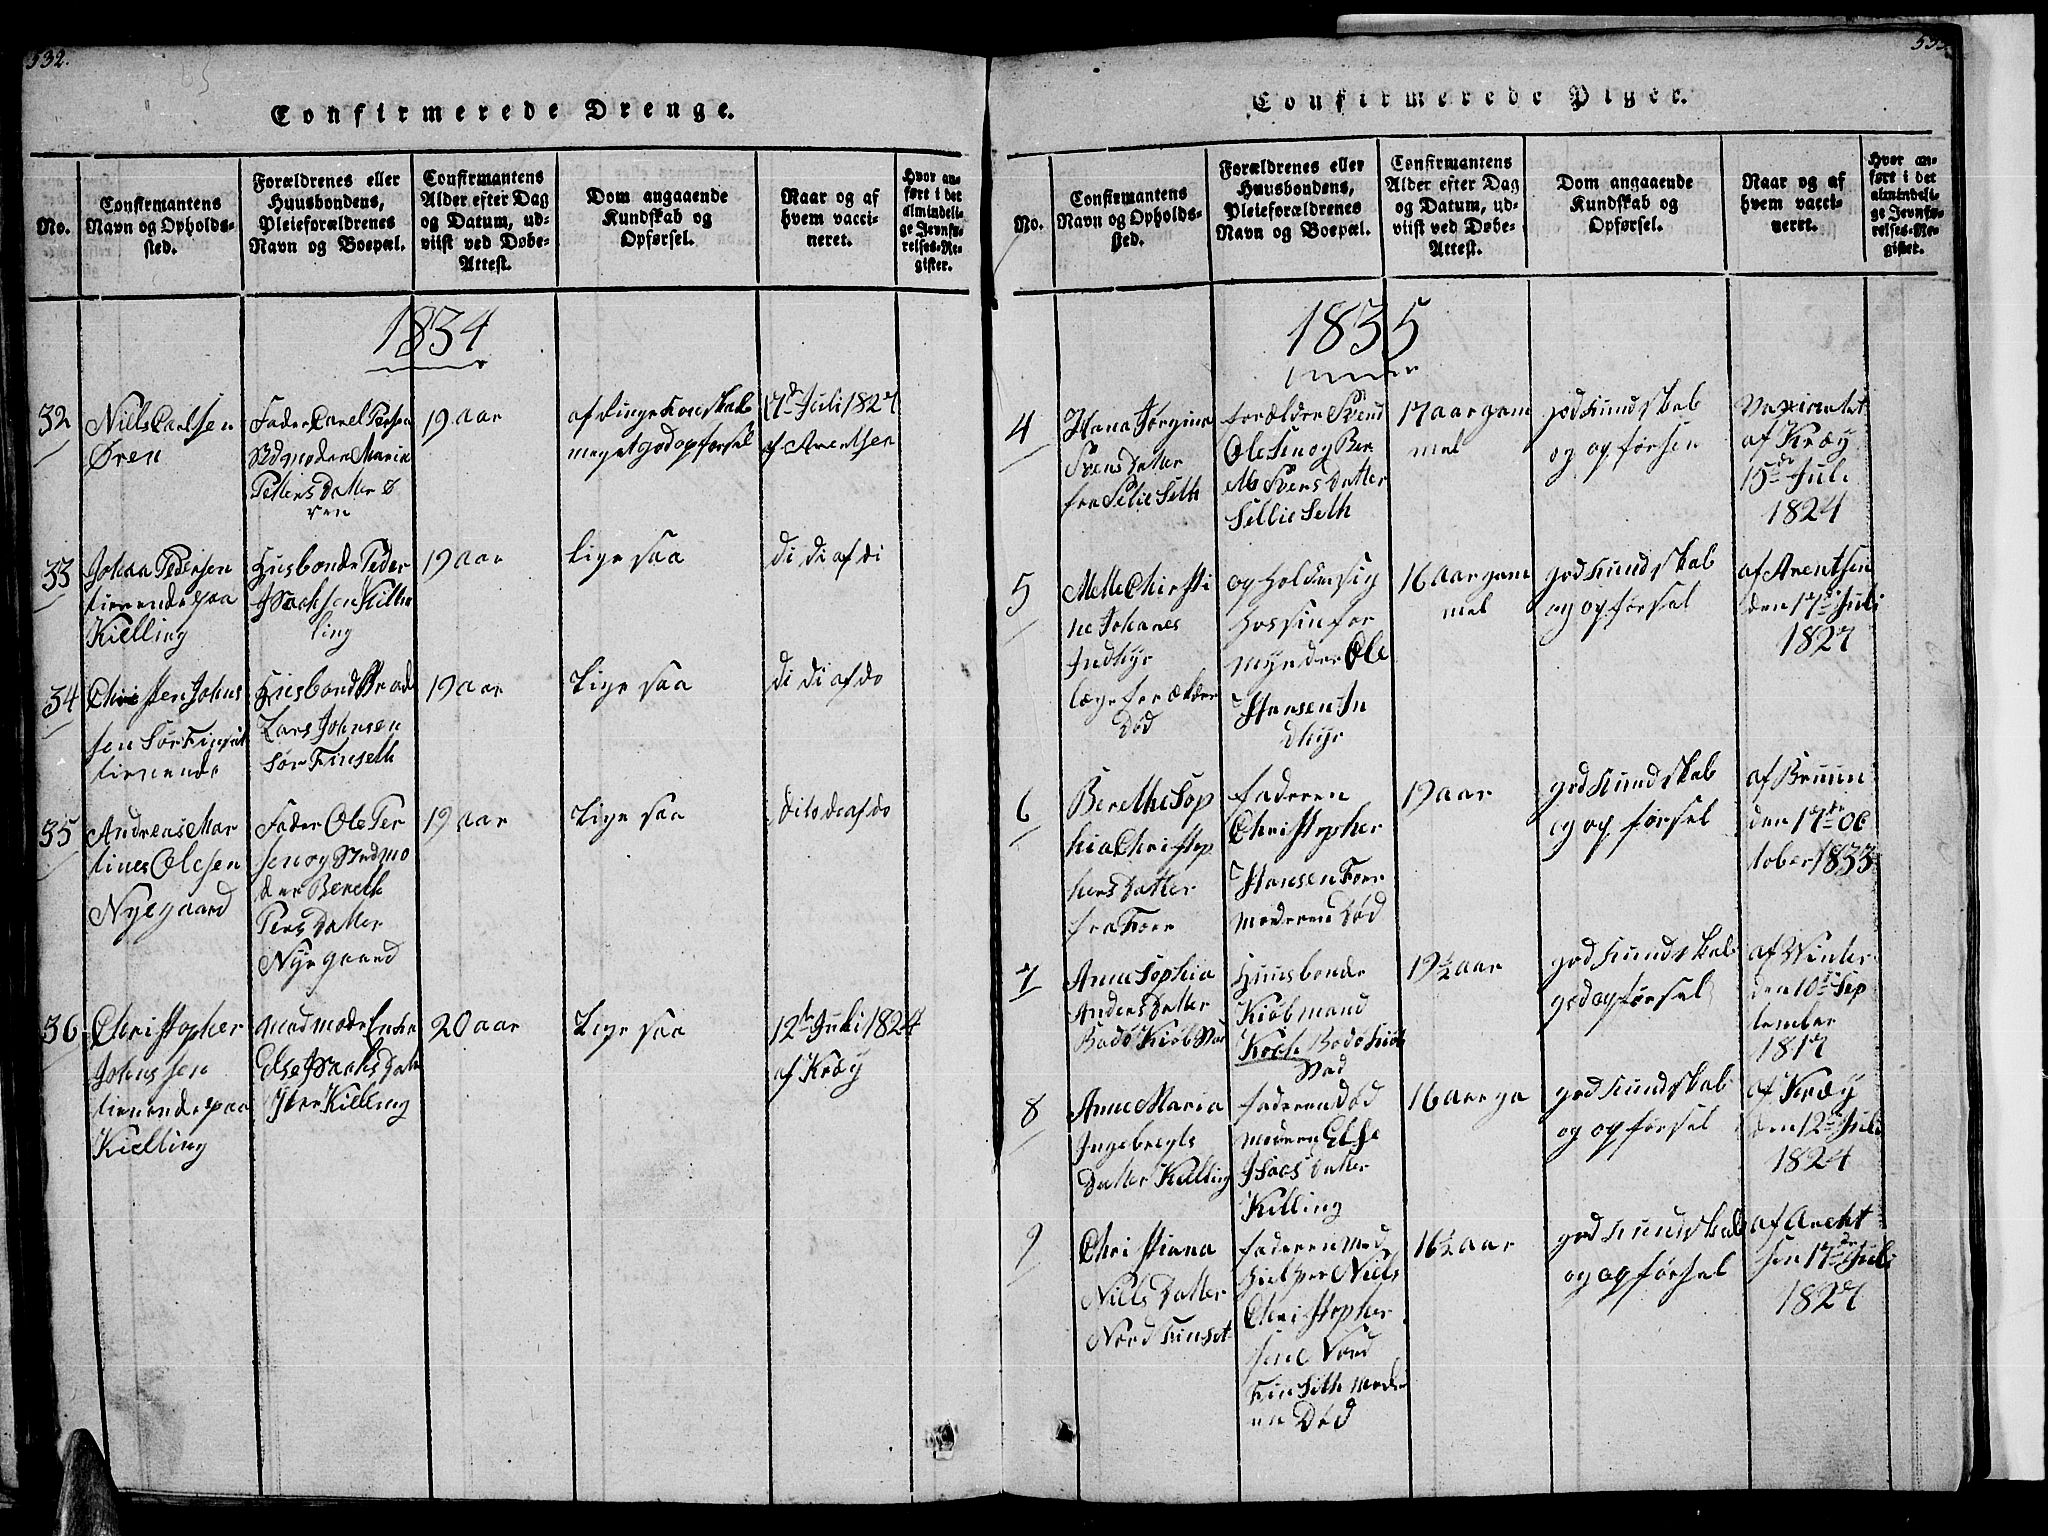 532.
Confirmerede Drenge.
No.
Confirmantens
Navn og Opholds-
sted.
Forældrenes eller
Huusbondens,
Pleieforældrenes
Navn og Boepæl.
Confirmantens
Alder efter Dag
og Datum, ud-
viist ved Døbe-
Attest.
Dom angaaende
Kundskab og
Opførsel.
Naar og af
hvem vacci-
neret.
Hvor an-
ført i det
almindeli-
ge Jevnfø-
relses-Re-
gister.
1834
32
Niels Carlsen
Øren
Fader Carel
moder Maria
Peters Datter Ø
ren
19 aar
af Ringe Konskab
meget god opførsel
17d Juli 1827
af Arentsen
33
Johan Pedersen
tienende paa
Kielling
Husbonde Peder
Isachsen Kille
ling
19 aar
Lige saa
di di af di
34
Christen Johns
sen Sør Finset
tienende
Husbond
Lars Johnsen
Sør Finseth
19 aar
Lige saa
di di af do
35
Andreas Mar
tines Olesen
Nyegaard
Fader Ole Per
sen og Stedmo
der Bereth
Pers Datter
Nyegaard
19 aar
Lige saa
dito de af do
36
Christopher
Johnssen
tienende paa
Kielling
Madmoder Enke
Else Isachs Dat
ter Kielling
20 aar
Lige saa
12te Juli 1824
af Kræy
533
Confirmerede Piger.
No.
Confirmantens
Navn og Opholds-
sted.
Forældrenes eller
Huusbondens,
Pleieforældrenes
Navn og Boepæl.
Confirmantens
Alder efter Dag
og Datum, ud-
viist ved Døbe-
Attest.
Dom angaaende
Kundskab og
Opførsel.
Naar og af
hvem vacci-
neret.
Hvor an-
ført i det
almindeli-
ge Jevnfø-
relses-Re-
gister.
1835
4
Hana Jørgine
Svens Datter
fra Selie Seth
forældre Svend
Olesen og Ber
Svens Datter
Sellie Seth
17 aar gam
mel
god Kundskab
og opførsen
af Kræy
15de Juli
1824
5
Mette Christi
ne Johanes
Indhyr
læge forældre
Død
opholdensig
hos sin for
mynder Ole
Hansen In
dhyr
16 aar gam
mel
god Kundskab
og opførsel
af Arentsen
den 17de Juli
1827
6
Berethe Sop
hia Christop
hers Datter
fra Foer
faderen
Christopher
Hansen Foer
moderen Død
19 aar
god Kundskab
og opførsel
af Bruun
den 17de Oc
tober 1833
7
Anne Sophia
Anders Datter
Bodø Kiøbstad
Huusbonde
Kiøbmand
Koch Bodø Kiøb
stad
19½ aar
god Kundskab
god opførsel
af Winter
den 10de Sep
tember
1817
8
Anne Maria
Ingebregts
Datter Killing
faderen Død
modern Else
Isacs Datter
Killing
16 aar ga
god Kundskab
og opførsel
af Kræy
den 12te Juli
1824
9
Christiana
Niels Datter
Nord Finset
faderen Med
hielper Niels
Christopher
sen Nord
Finseth mode
en Død
16½ aar
god Kundskab
og opførsel
af Arent
sen 17de Juli
1827